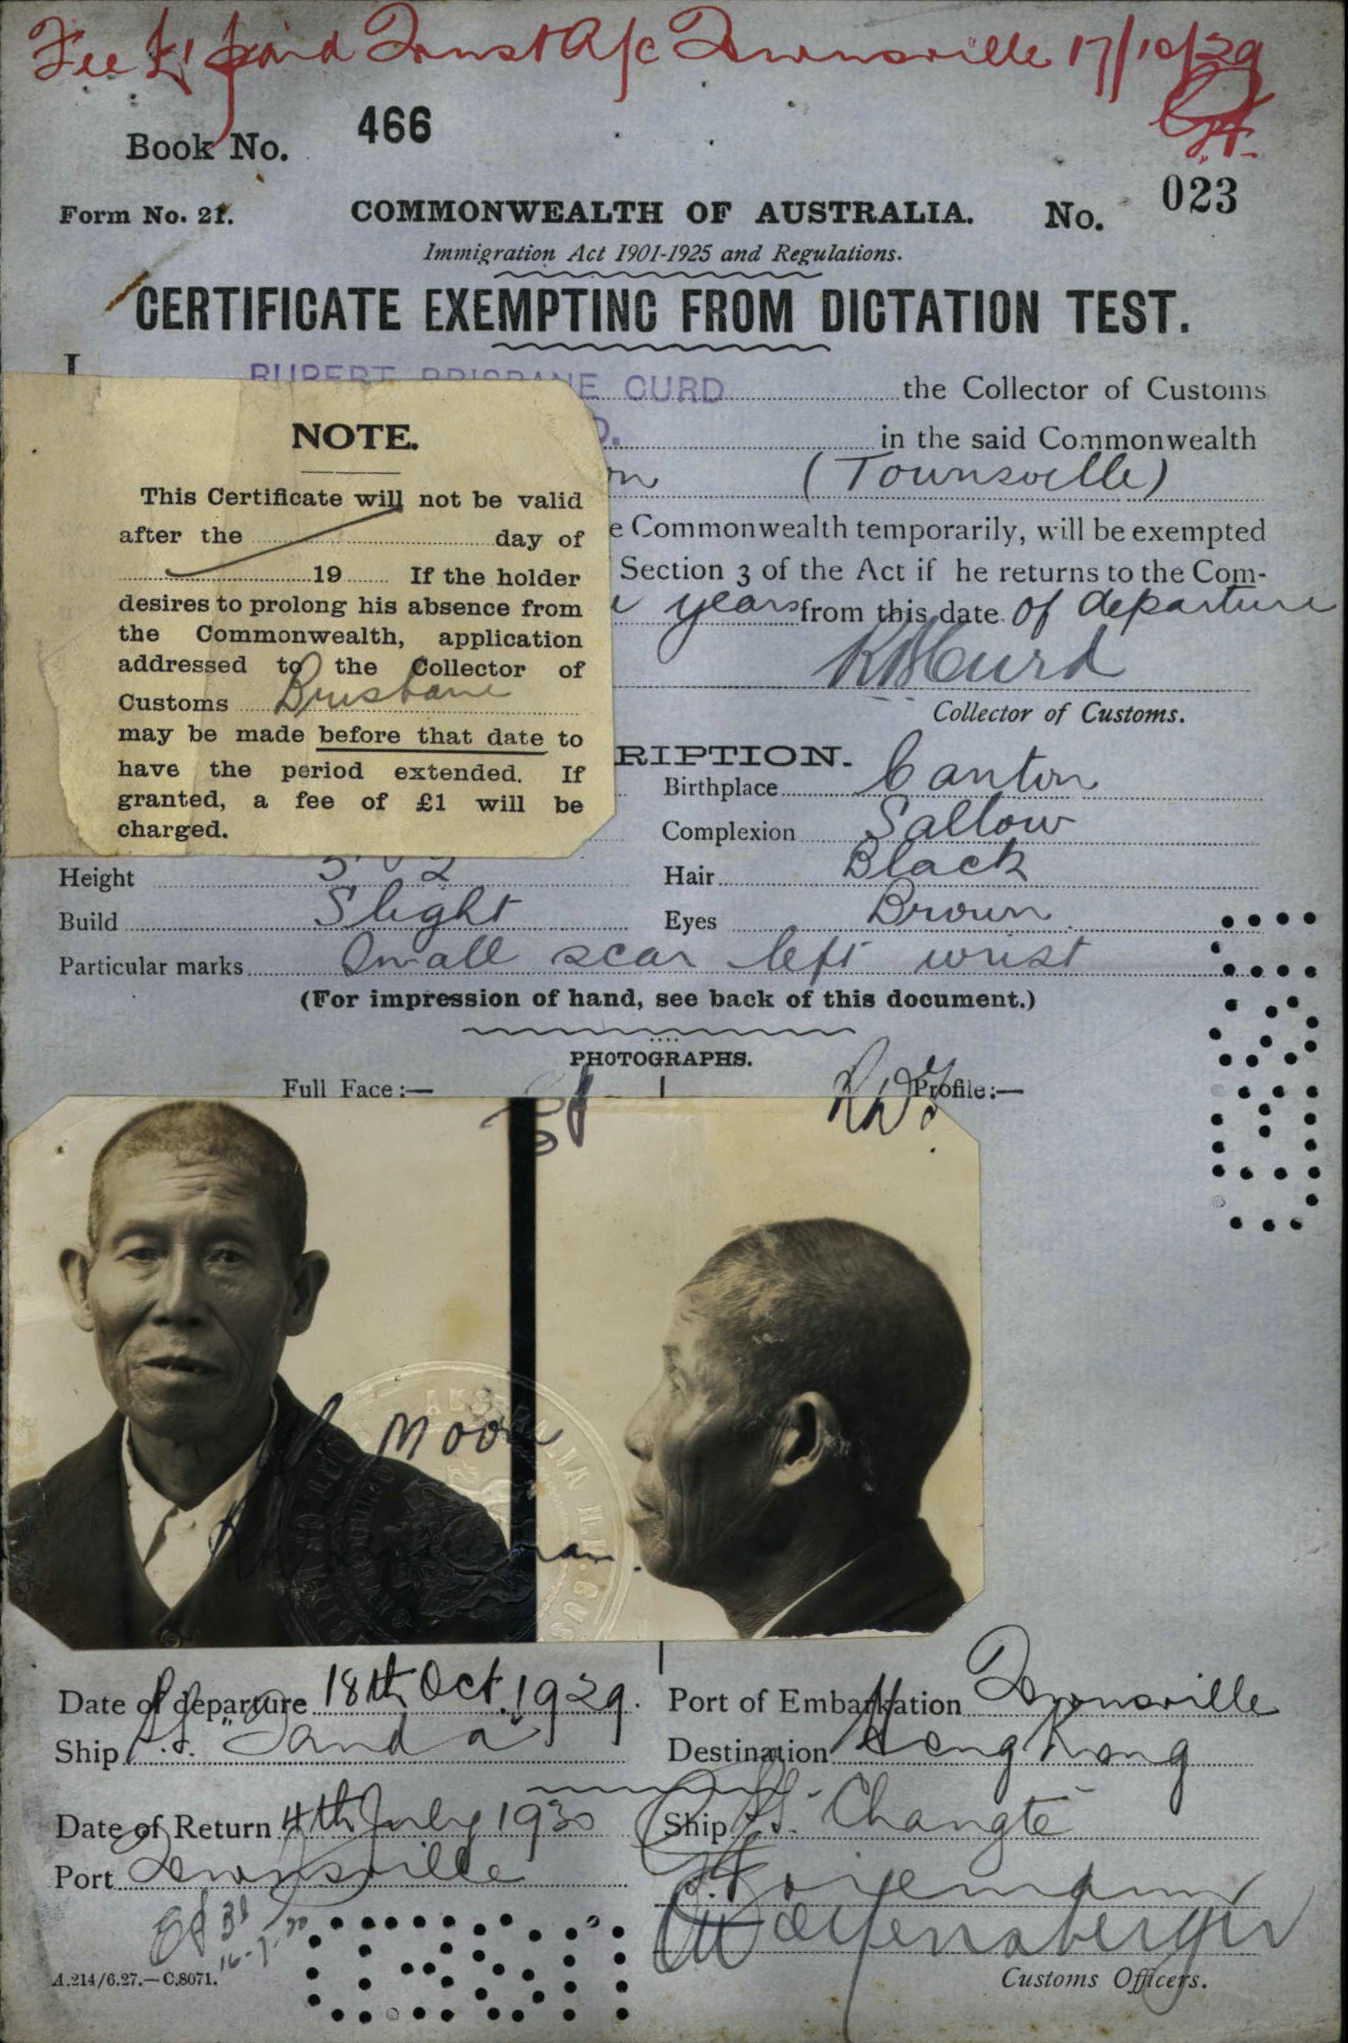 Fee £1 paid Trust A/c Townsville 17/10/29
Book No. 466
Form No. 21. COMMONWEALTH OF AUSTRALIA. No. 023
Immigration Act 1901-1925 and Regulations.
CERTIFICATE EXEMPTING FROM DICTATION TEST.
I
RUPERT BRISBANE CURD the Collector of Customs
in the said Commonwealth
(Townsville)
e Commonwealth temporarily, will be exempted
Section 3 of the Act if he returns to the Com-
years from this date of departure
Collector of Customs.
NOTE.
This Certificate will not be valid
after the day of
19 If the holder
desires to prolong his absence from
the Commonwealth, application
addressed to the Collector of
Customs Brisbane
may be made before that date to
have the period extended. If
granted, a fee of £1 will be
charged.
RIPTION.
Birthplace Canton
Complexion Sallow
Height Hair Black
Build Slight Eyes Brown
Particular marks Small scar left wrist
(For impression of hand, see back of this document.)
PHOTOGRAPHS.
Full Face:— Profile:—
Moon
Date of departure 18th Oct. 1929. Port of Embarkation Townsville
Ship S.S. "Tanda" Destination Hong Kong
Date of Return 4th July 1930 Ship S.S. Changte
Port Townsville
A.214/6.27.—C.8071. Customs Officers.